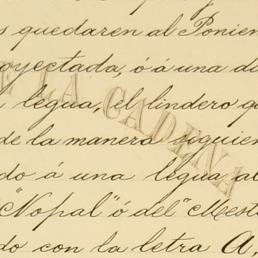 s quedaren al Ponien
oyectada, ó á una di
legua, el lindero q
de la manera siguien
do á una legua al
"Nopal" ó del "Mest
do con la letra A,
LA CADENA